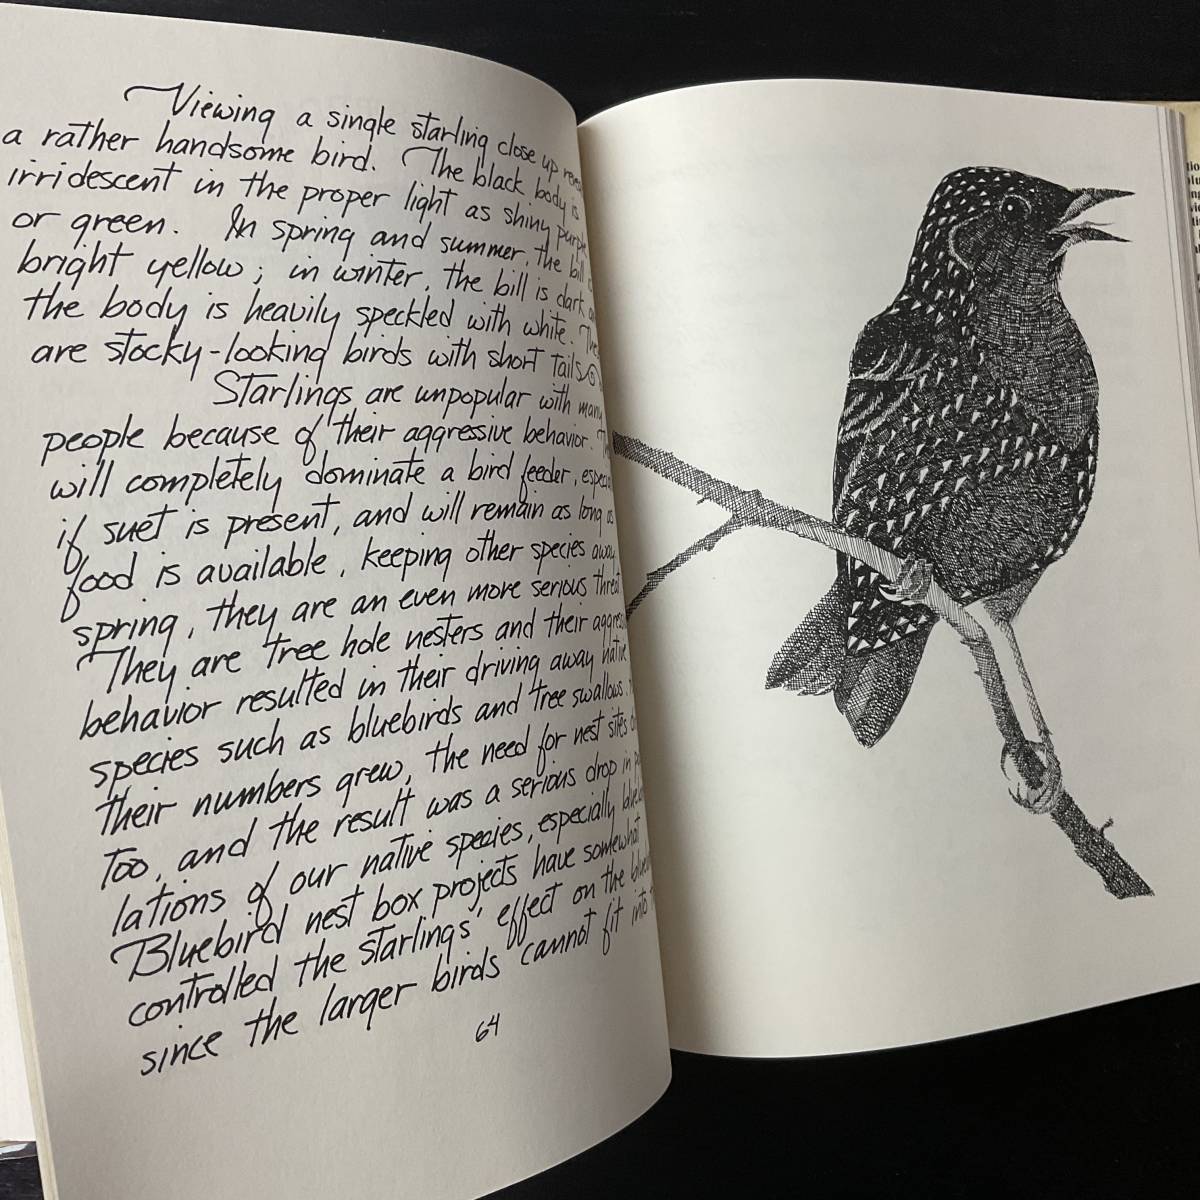 Viewing a single starling close up
a rather handsome bird. The black body is
irridescent in the proper light as shiny purple
or green. In spring and summer, the bill is
bright yellow; in winter, the bill is dark
the body is heavily speckled with white.
are stocky-looking birds with short tails
Starlings are unpopular with many
people because of their aggressive behavior.
will completely dominate a bird feeder,
if suet is present, and will remain as long as
food is available, keeping other species away
spring, they are an even more serious threat
They are tree hole nesters and their
behavior resulted in their driving away native
species such as bluebirds and tree swallows.
their numbers grew, the need for nest sites
too, and the result was a serious drop in
lations of our native species, especially
Bluebird nest box projects have somewhat
controlled the starlings' effect on the
since the larger birds cannot fit into
64